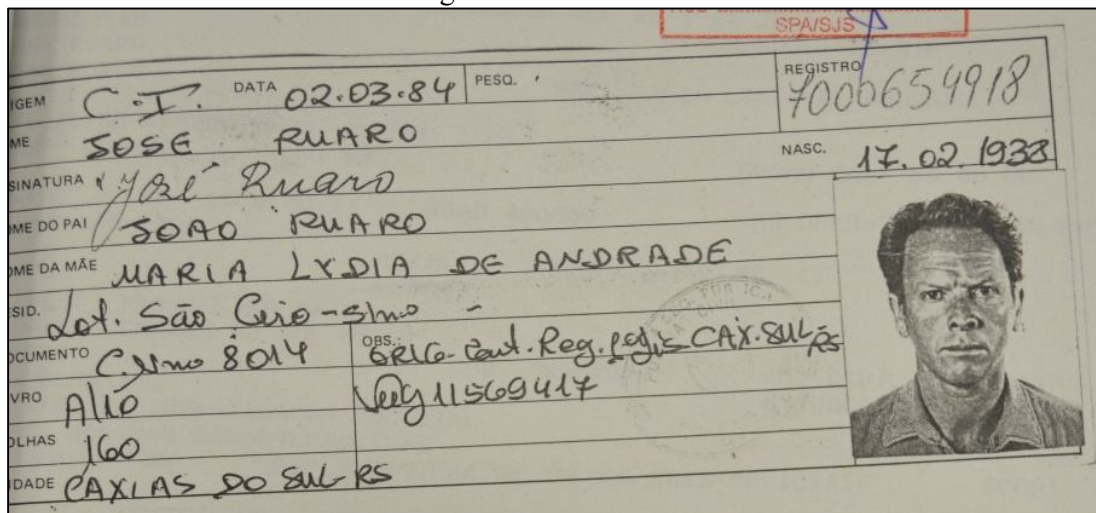 SPA/SJS
IGEM C.I. DATA 02.03.84 PESQ. REGISTRO 7000654918
ME JOSE RUARO NASC. 17.02.1933
SINATURA José Ruaro
OME DO PAI JOAO RUARO
OME DA MÃE MARIA LYDIA DE ANDRADE
ESID. Lot. São Ciro - s/no -
OCUMENTO C.N no 8014 OBS.: CAX. SUL RS
VRO A110 11569417
OLHAS 160
IDADE CAXIAS DO SUL-RS